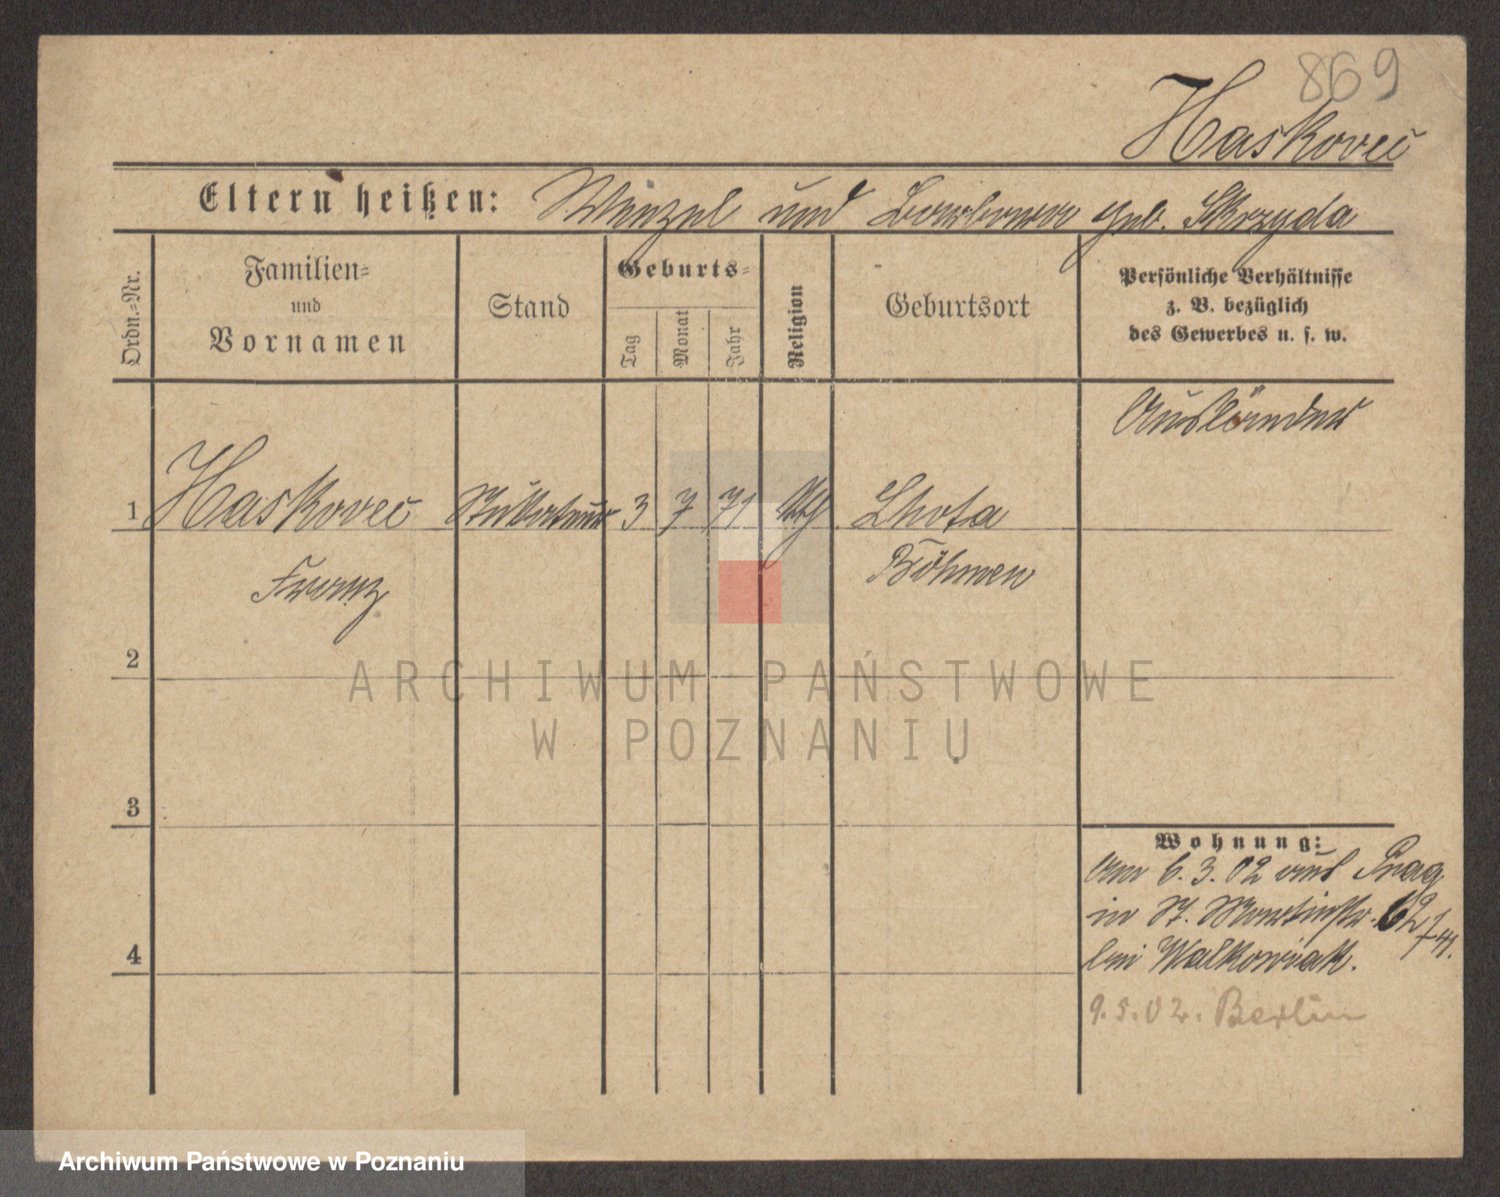 869
Haskovec
Eltern heißen: Wenzel und Barbara geb. Skrzyda
Ordn.-Nr.
Familien-
und
Vornamen
Stand
Geburts-
Tag
Monat
Jahr
Religion
Geburtsort
Persönliche Verhältnisse
z. B. bezüglich
des Gewerbes u. s. w.
Ausländer
1 Haskovec Stukateur 3 7 71 kth Lhota
Franz Böhmen
2
ARCHIWUM PAŃSTWOWE
W POZNANIU
3
Wohnung:
Am 6.3.02 aus Prag
in St. Martinstr. 62
bei Walkowiak.
4
9.5.02. Berlin
Archiwum Państwowe w Poznaniu